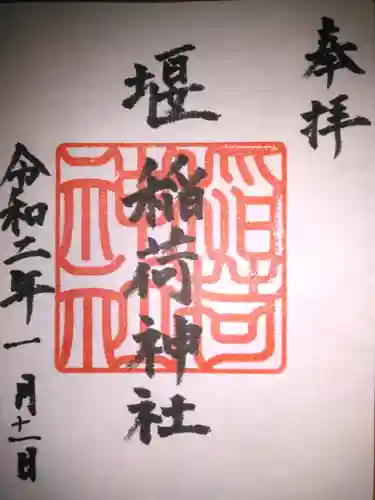 奉拝
堰稲荷神社
令和二年一月十一日
稲荷神社